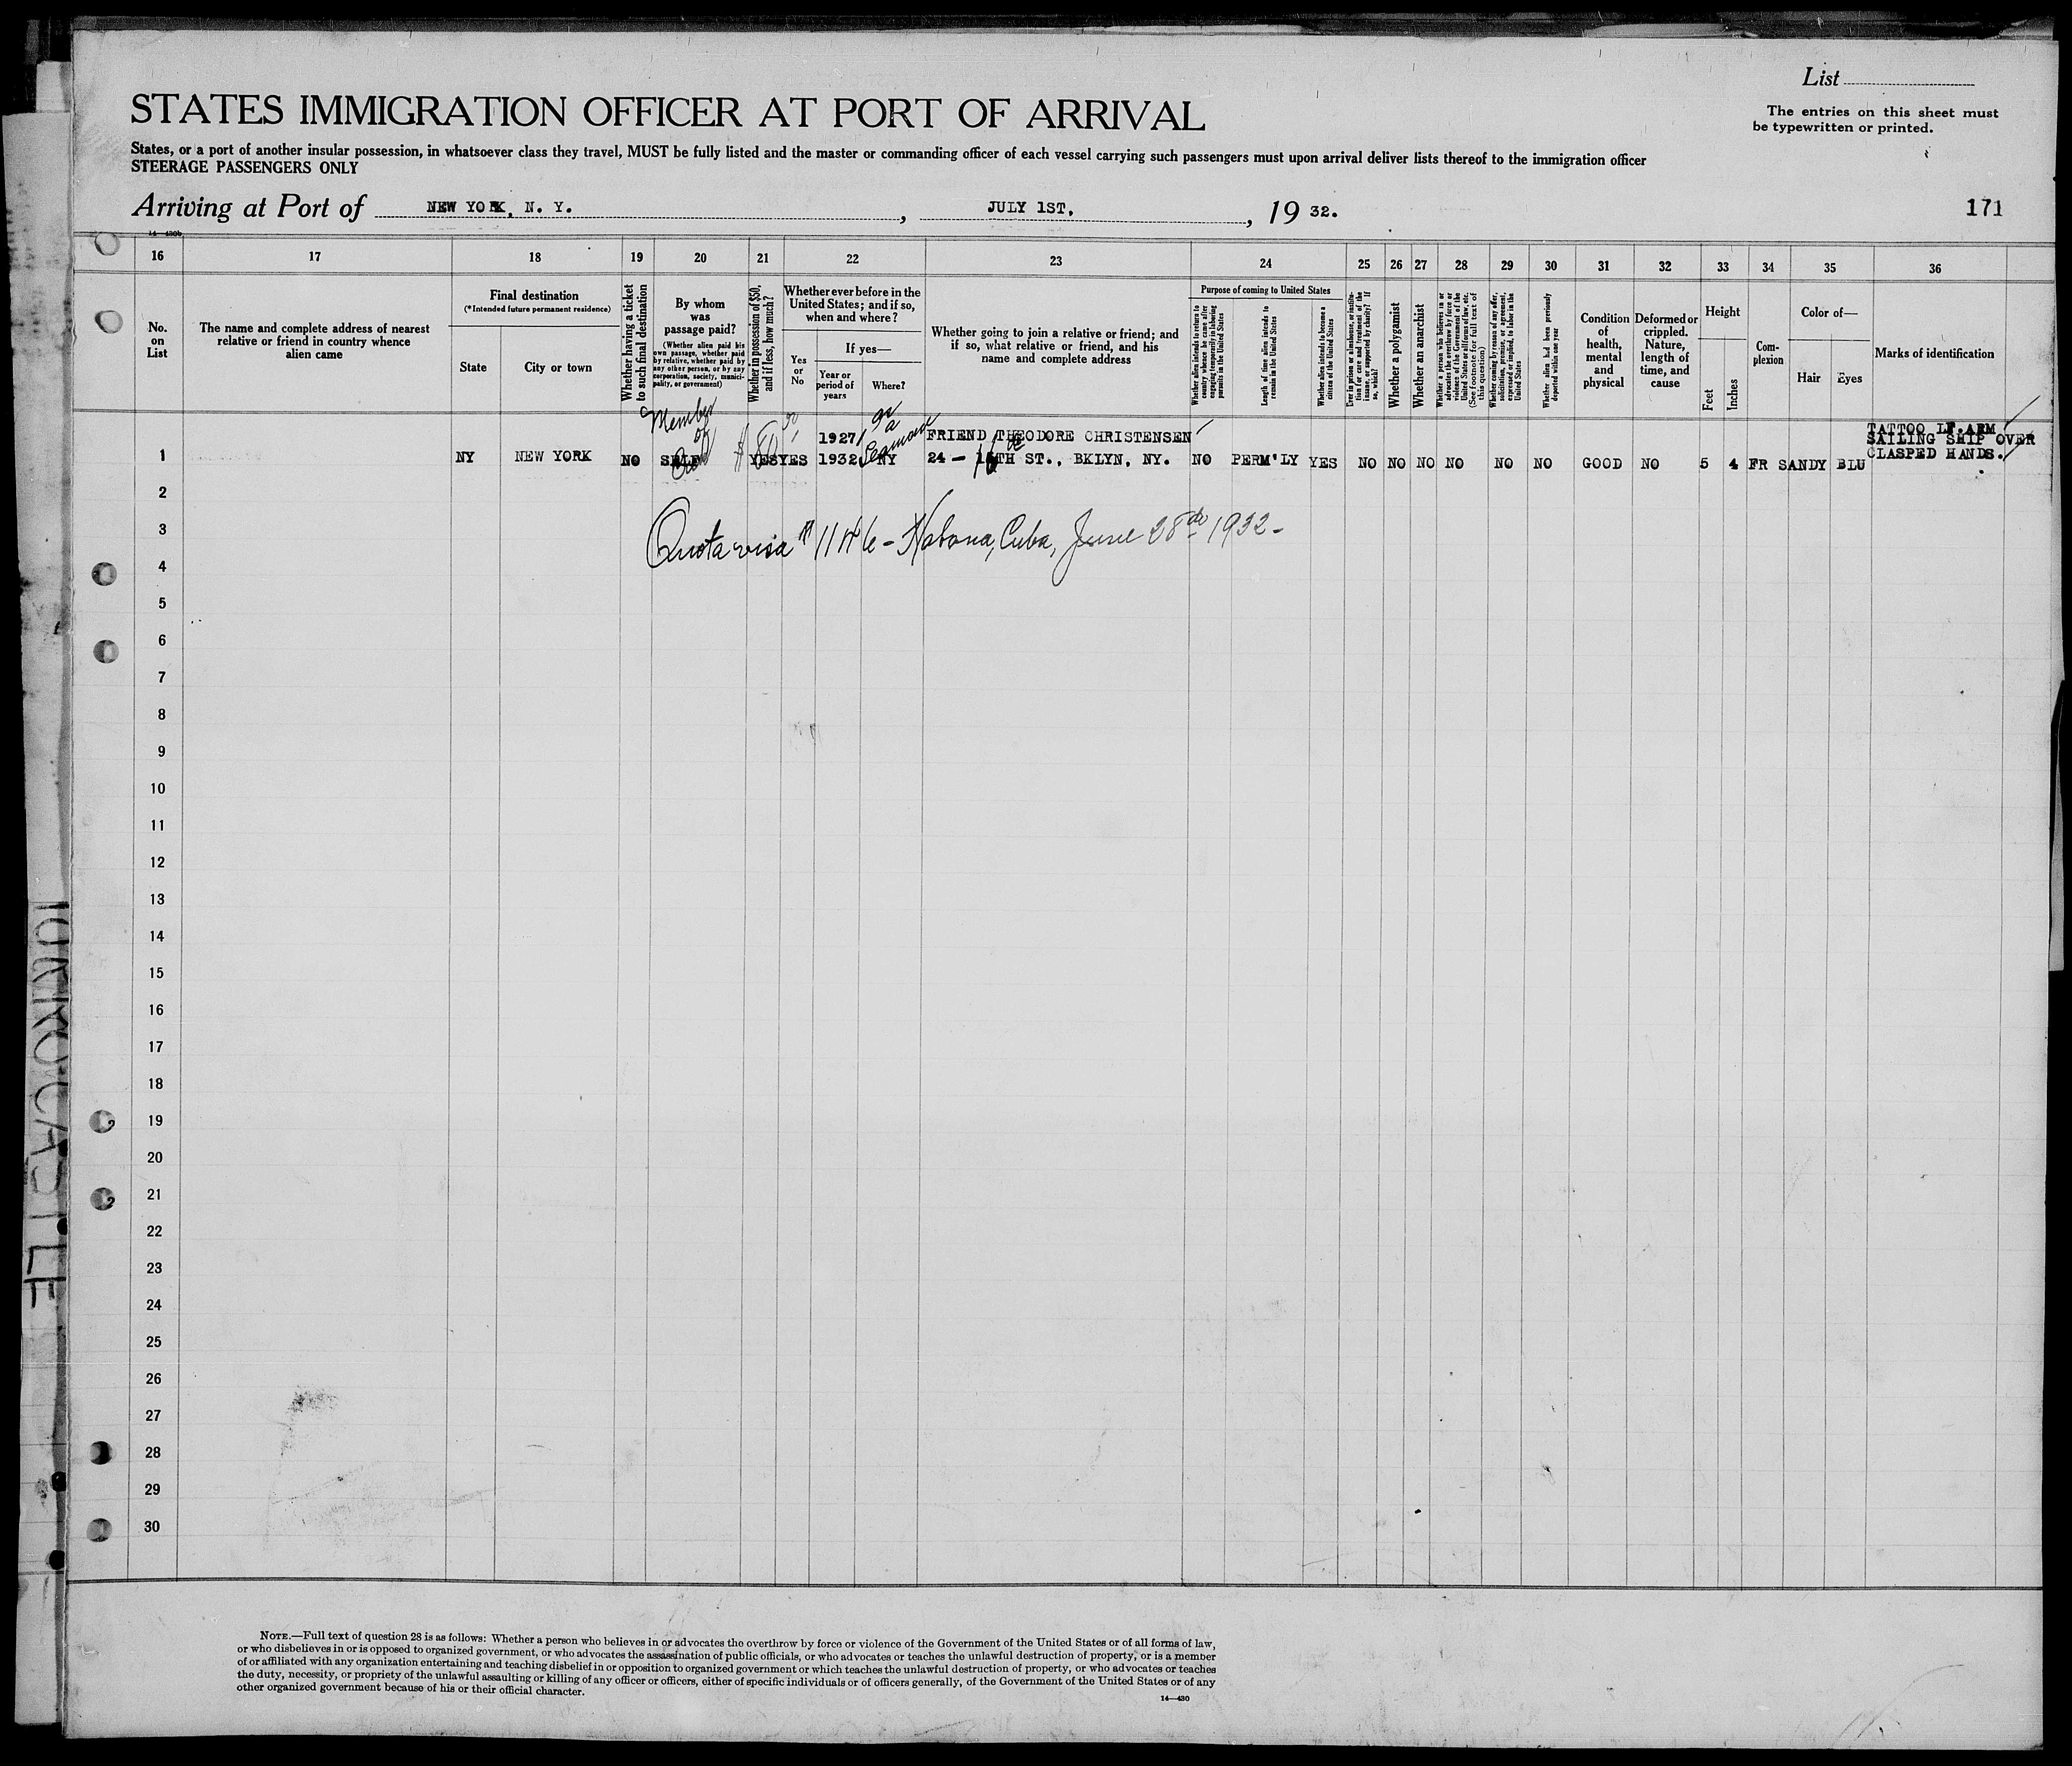 List
STATES IMMIGRATION OFFICER AT PORT OF ARRIVAL
The entries on this sheet must
be typewritten or printed.
States, or a port of another insular possession, in whatsoever class they travel, MUST be fully listed and the master or commanding officer of each vessel carrying such passengers must upon arrival deliver lists thereof to the immigration officer
STEERAGE PASSENGERS ONLY
Arriving at Port of NEW YORK, N. Y. , JULY 1ST, , 19 32.
171
14—430b
16 17 18 19 20 21 22 23 24 25 26 27 28 29 30 31 32 33 34 35 36
No.
on
List
The name and complete address of nearest
relative or friend in country whence
alien came
Final destination
(*Intended future permanent residence)
State
City or town
Whether having a ticket
to such final destination
By whom
was
passage paid?
(Whether alien paid his
own passage, whether paid
by relative, whether paid by
any other person, or by any
corporation, society, munici-
pality, or government)
Whether in possession of $50,
and if less, how much?
Whether ever before in the
United States; and if so,
when and where?
Yes
or
No
If yes—
Year or
period of
years
Where?
Whether going to join a relative or friend; and
if so, what relative or friend, and his
name and complete address
Purpose of coming to United States
Whether alien intends to return to
country whence he came after
engaging temporarily in laboring
pursuits in the United States
Length of time alien intends to
remain in the United States
Whether alien intends to become a
citizen of the United States
Ever in prison or almshouse, or institu-
tion for care and treatment of the
insane, or supported by charity? If
so, which?
Whether a polygamist
Whether an anarchist
Whether a person who believes in or
advocates the overthrow by force or
violence of the Government of the
United States or all forms of law, etc.
(See footnote for full text of
this question)
Whether coming by reason of any offer,
solicitation, promise, or agreement,
expressed or implied, to labor in the
United States
Whether alien had been previously
deported within one year
Condition
of
health,
mental
and
physical
Deformed or
crippled.
Nature,
length of
time, and
cause
Height
Feet
Inches
Com-
plexion
Color of—
Hair
Eyes
Marks of identification
Member
of
as
a
Seaman
1927
FRIEND THEODORE CHRISTENSEN
TATTOO LF.ARM
SAILING SHIP OVER
CLASPED HANDS.
1 NY NEW YORK NO SELF YES YES 1932 NY 24 — 16TH ST., BKLYN, NY. NO PERM'LY YES NO NO NO NO NO NO GOOD NO 5 4 FR SANDY BLU
2
3
Quota visa # 1146 - Habana, Cuba, June 28th 1932 -
4
5
6
7
8
9
10
11
12
13
14
15
16
17
18
19
20
21
22
23
24
25
26
27
28
29
30
NOTE.—Full text of question 28 is as follows: Whether a person who believes in or advocates the overthrow by force or violence of the Government of the United States or of all forms of law,
or who disbelieves in or is opposed to organized government, or who advocates the assassination of public officials, or who advocates or teaches the unlawful destruction of property, or is a member
of or affiliated with any organization entertaining and teaching disbelief in or opposition to organized government or which teaches the unlawful destruction of property, or who advocates or teaches
the duty, necessity, or propriety of the unlawful assaulting or killing of any officer or officers, either of specific individuals or of officers generally, of the Government of the United States or of any
other organized government because of his or their official character.
14—430